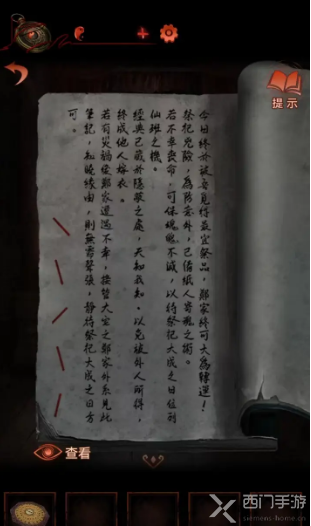 提示
今日終於被吾覓得最宜祭品，鄭家終可大為轉運！
祭祀兇險，為防意外，已備紙人寄魂之術。
若不幸喪命，可保魂魄不滅，以待祭祀大成之日位列
仙班之機。
經典已藏於隱蔽之處，天知我知。以免被外人所得，
終成他人嫁衣。
若有災禍使鄭家遭遇不幸，接管大宅之鄭家外系見此
筆記，知曉緣由，則無需聲張，靜待祭祀大成之日方
可。
查看
西门手游
ximens-home.cn